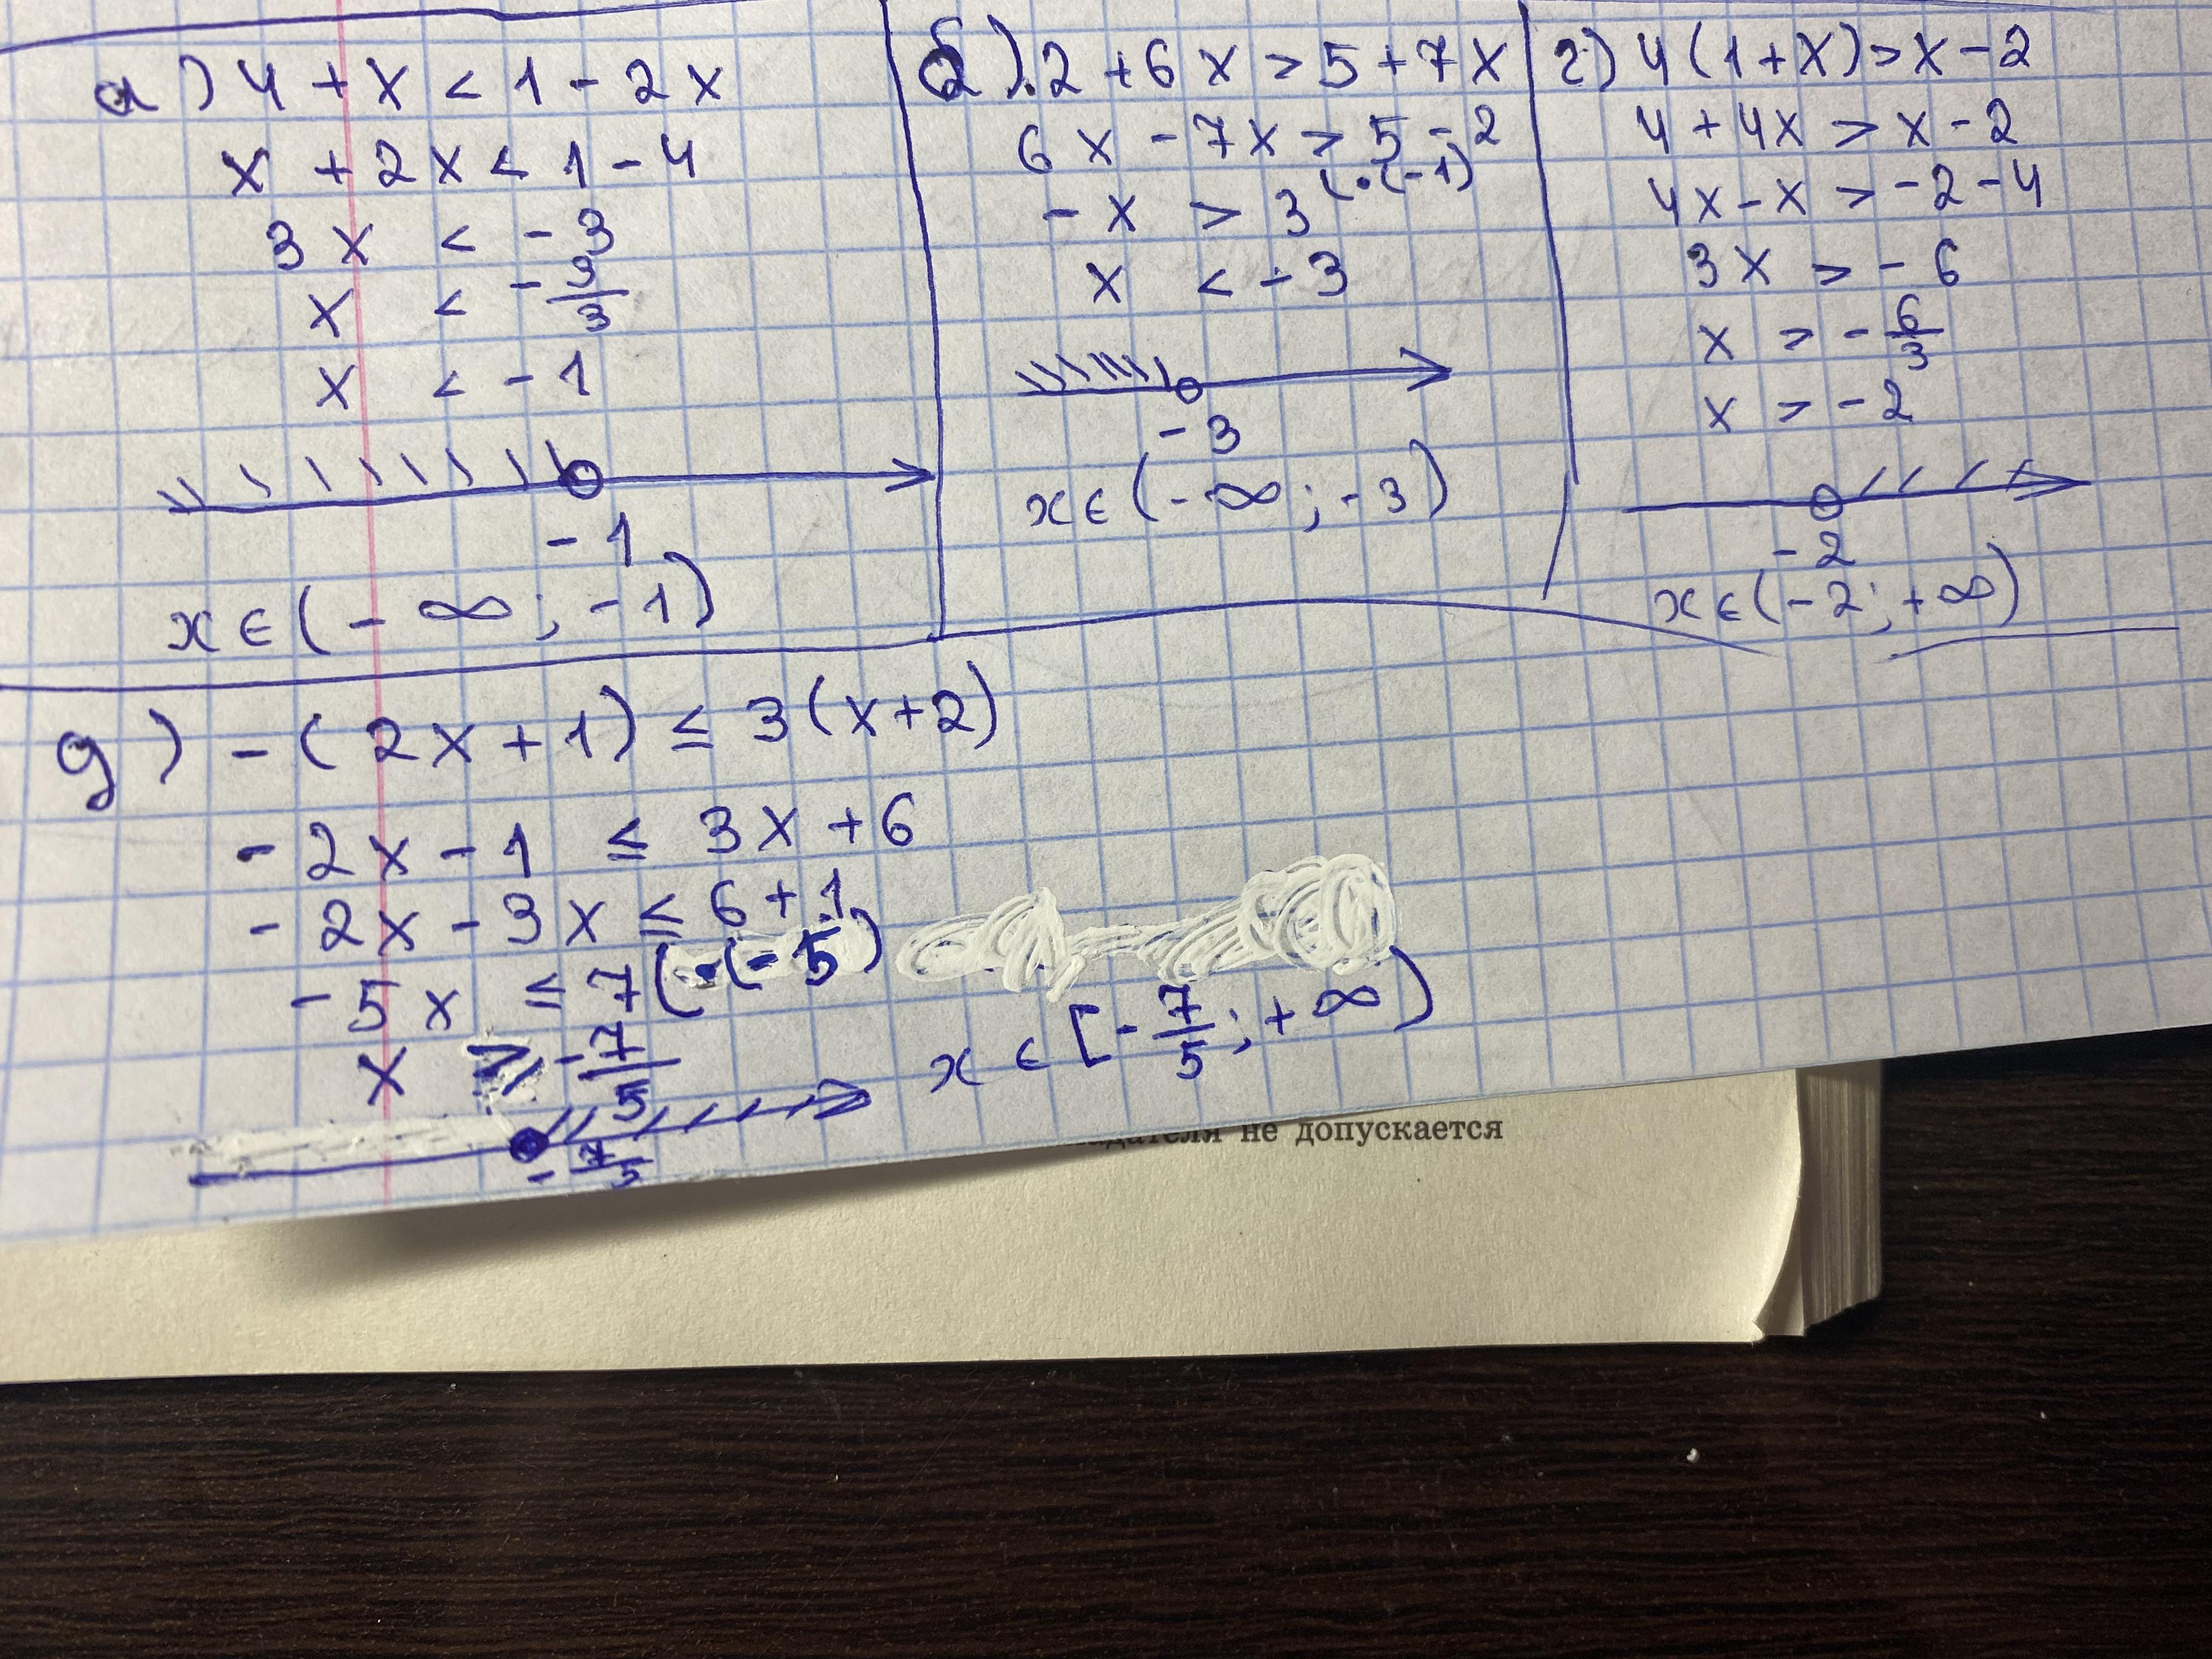 а) 4 + x < 1 - 2x
x + 2x < 1 - 4
3x < -3
x < -3/3
x < -1
-1
x ∈ (-∞; -1)
б) 2 + 6x > 5 + 7x
6x - 7x > 5 - 2
-x > 3 (·(-1)
x < -3
-3
x ∈ (-∞; -3)
г) 4(1+x) > x - 2
4 + 4x > x - 2
4x - x > -2 - 4
3x > -6
x > -6/3
x > -2
-2
x ∈ (-2; +∞)
д) -(2x + 1) ≤ 3(x+2)
-2x - 1 ≤ 3x + 6
-2x - 3x ≤ 6 + 1
-5x ≤ 7 (·(-5)
x ≥ -7/5
-7/5
x ∈ [-7/5; +∞)
не допускается